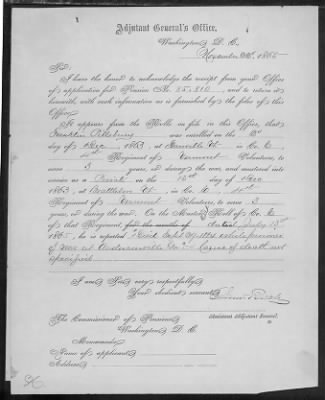 Adjutant General's Office,
Washington, D. C.
November, 1865
Sir:
I have the honor to acknowledge the receipt from your Office
of application for Pension No. 85.810, and to return it
herewith, with such information as is furnished by the files of this
Office.
It appears from the Rolls on file in this Office, that
Franklin was enrolled on the
day of Dec, 1863, at in Co. E,
4 Regiment of Vermont Volunteers, to serve
3 years, or during the war, and mustered into
service as a Private on the 15th day of Dec
1863, at Brattleboro Vt, in Co. E, 4th
Regiment of Vermont Volunteers, to serve 3
years, or during the war. On the Muster Roll of Co. E
of that Regiment, for the months of
1865, he is reported "Died Sept 1864 while prisoner
of war at Andersonville Ga." Cause of death not
specified
I am, Sir, very respectfully,
Your obedient servant,
Assistant Adjutant General.
The Commissioner of Pensions,
Washington, D. C.
Memoranda:
Name of applicant
Address